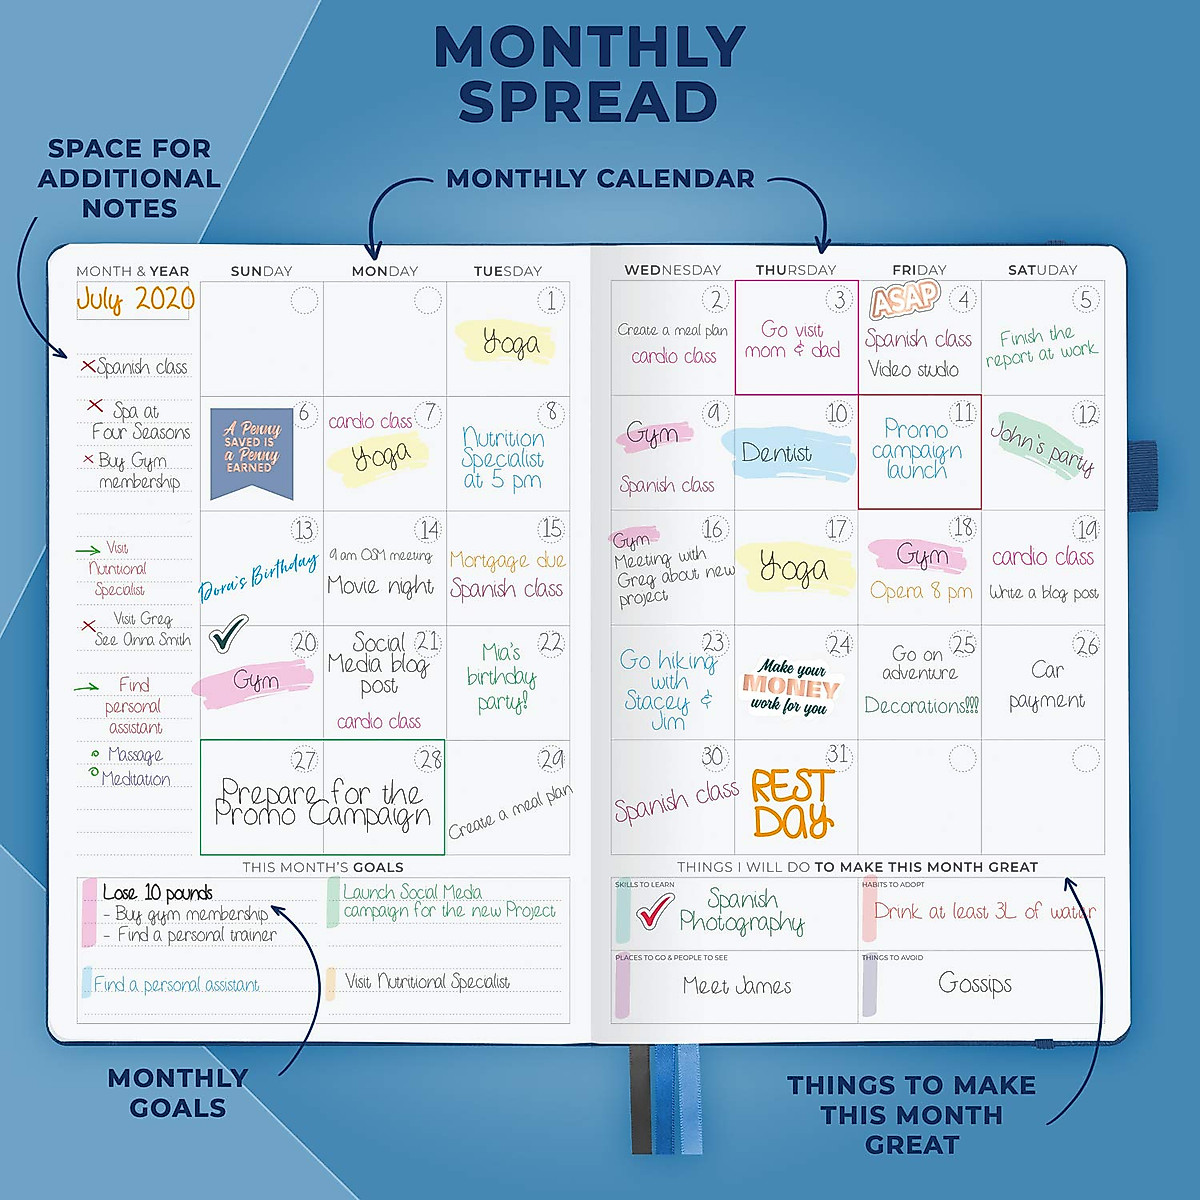 MONTHLY
SPREAD
SPACE FOR
ADDITIONAL
NOTES
MONTHLY CALENDAR
MONTH & YEAR
SUNDAY
MONDAY
TUESDAY
WEDNESDAY
THURSDAY
FRIDAY
SATUDAY
July 2020
Spanish class
Spa at
Four Seasons
Buy Gym
membership
Visit
Nutritional
Specialist
Visit Greg
See Anna Smith
Find
personal
assistant
Massage
Meditation
1
Yoga
2
Create a meal plan
cardio class
3
Go visit
mom & dad
ASAP
4
Spanish class
Video studio
5
Finish the
report at work
6
A Penny
SAVED IS
a Penny
EARNED
7
cardio class
Yoga
8
Nutrition
Specialist
at 5 pm
9
Gym
Spanish class
10
Dentist
11
Promo
campaign
launch
12
John's party
13
Dora's Birthday
14
9 am OSM meeting
Movie night
15
Mortgage due
Spanish class
16
Gym
Meeting with
Greg about new
project
17
Yoga
18
Gym
Opera 8 pm
19
cardio class
Write a blog post
20
Gym
21
Social
Media blog
post
cardio class
22
Mia's
birthday
party!
23
Go hiking
with
Stacey &
Jim
24
Make your
MONEY
work for you
25
Go on
adventure
Decorations!!!
26
Car
payment
27
28
Prepare for the
Promo Campaign
29
Create a meal plan
30
Spanish class
31
REST
DAY
THIS MONTH'S GOALS
Lose 10 pounds
- Buy gym membership
- Find a personal trainer
Launch Social Meda
campaign for the new Project
Find a personal assistant
Visit Nutritional Specialist
THINGS I WILL DO TO MAKE THIS MONTH GREAT
SKILLS TO LEARN
Spanish
Photography
HABITS TO ADOPT
Drink at least 3L of water
PLACES TO GO & PEOPLE TO SEE
Meet James
THINGS TO AVOID
Gossips
MONTHLY
GOALS
THINGS TO MAKE
THIS MONTH
GREAT